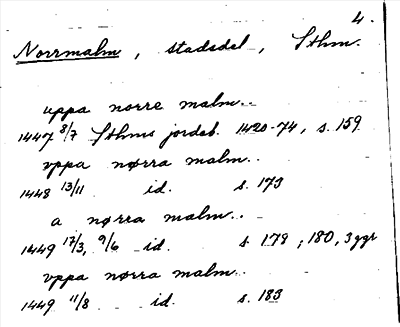 4.
Norrmalm, stadsdel, Sthm.
uppa norre malm..
1447 8/7 Sthms jordeb. 1420-74, s. 159
vppa nørra malm..
1448 13/11 id. s. 173
a nørra malm..
1449 17/3, 9/6 id. s. 179, 180, 3 ggr
vppa nørra malm..
1449 11/8 id. s. 183